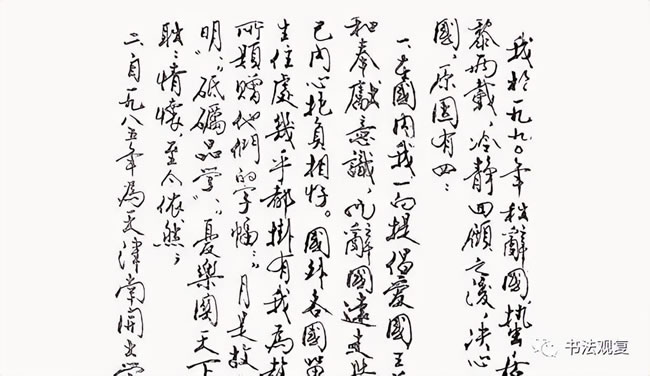 我於一九九〇年秋辭國,蟄居
黎兩載,冷靜回顧之後,決心
國,原因有四:
一、在國內我一向提倡愛國主
和奉獻意識,此辭國遠走
己內心抱負相忤。國外各國留
生住處幾乎都掛有我為
所題贈他們的字幅:"月是故
明","砥礪品学","憂樂關天下
耿耿情懷,至今依然;
二、自一九八五年為天津南開大学
书法观复